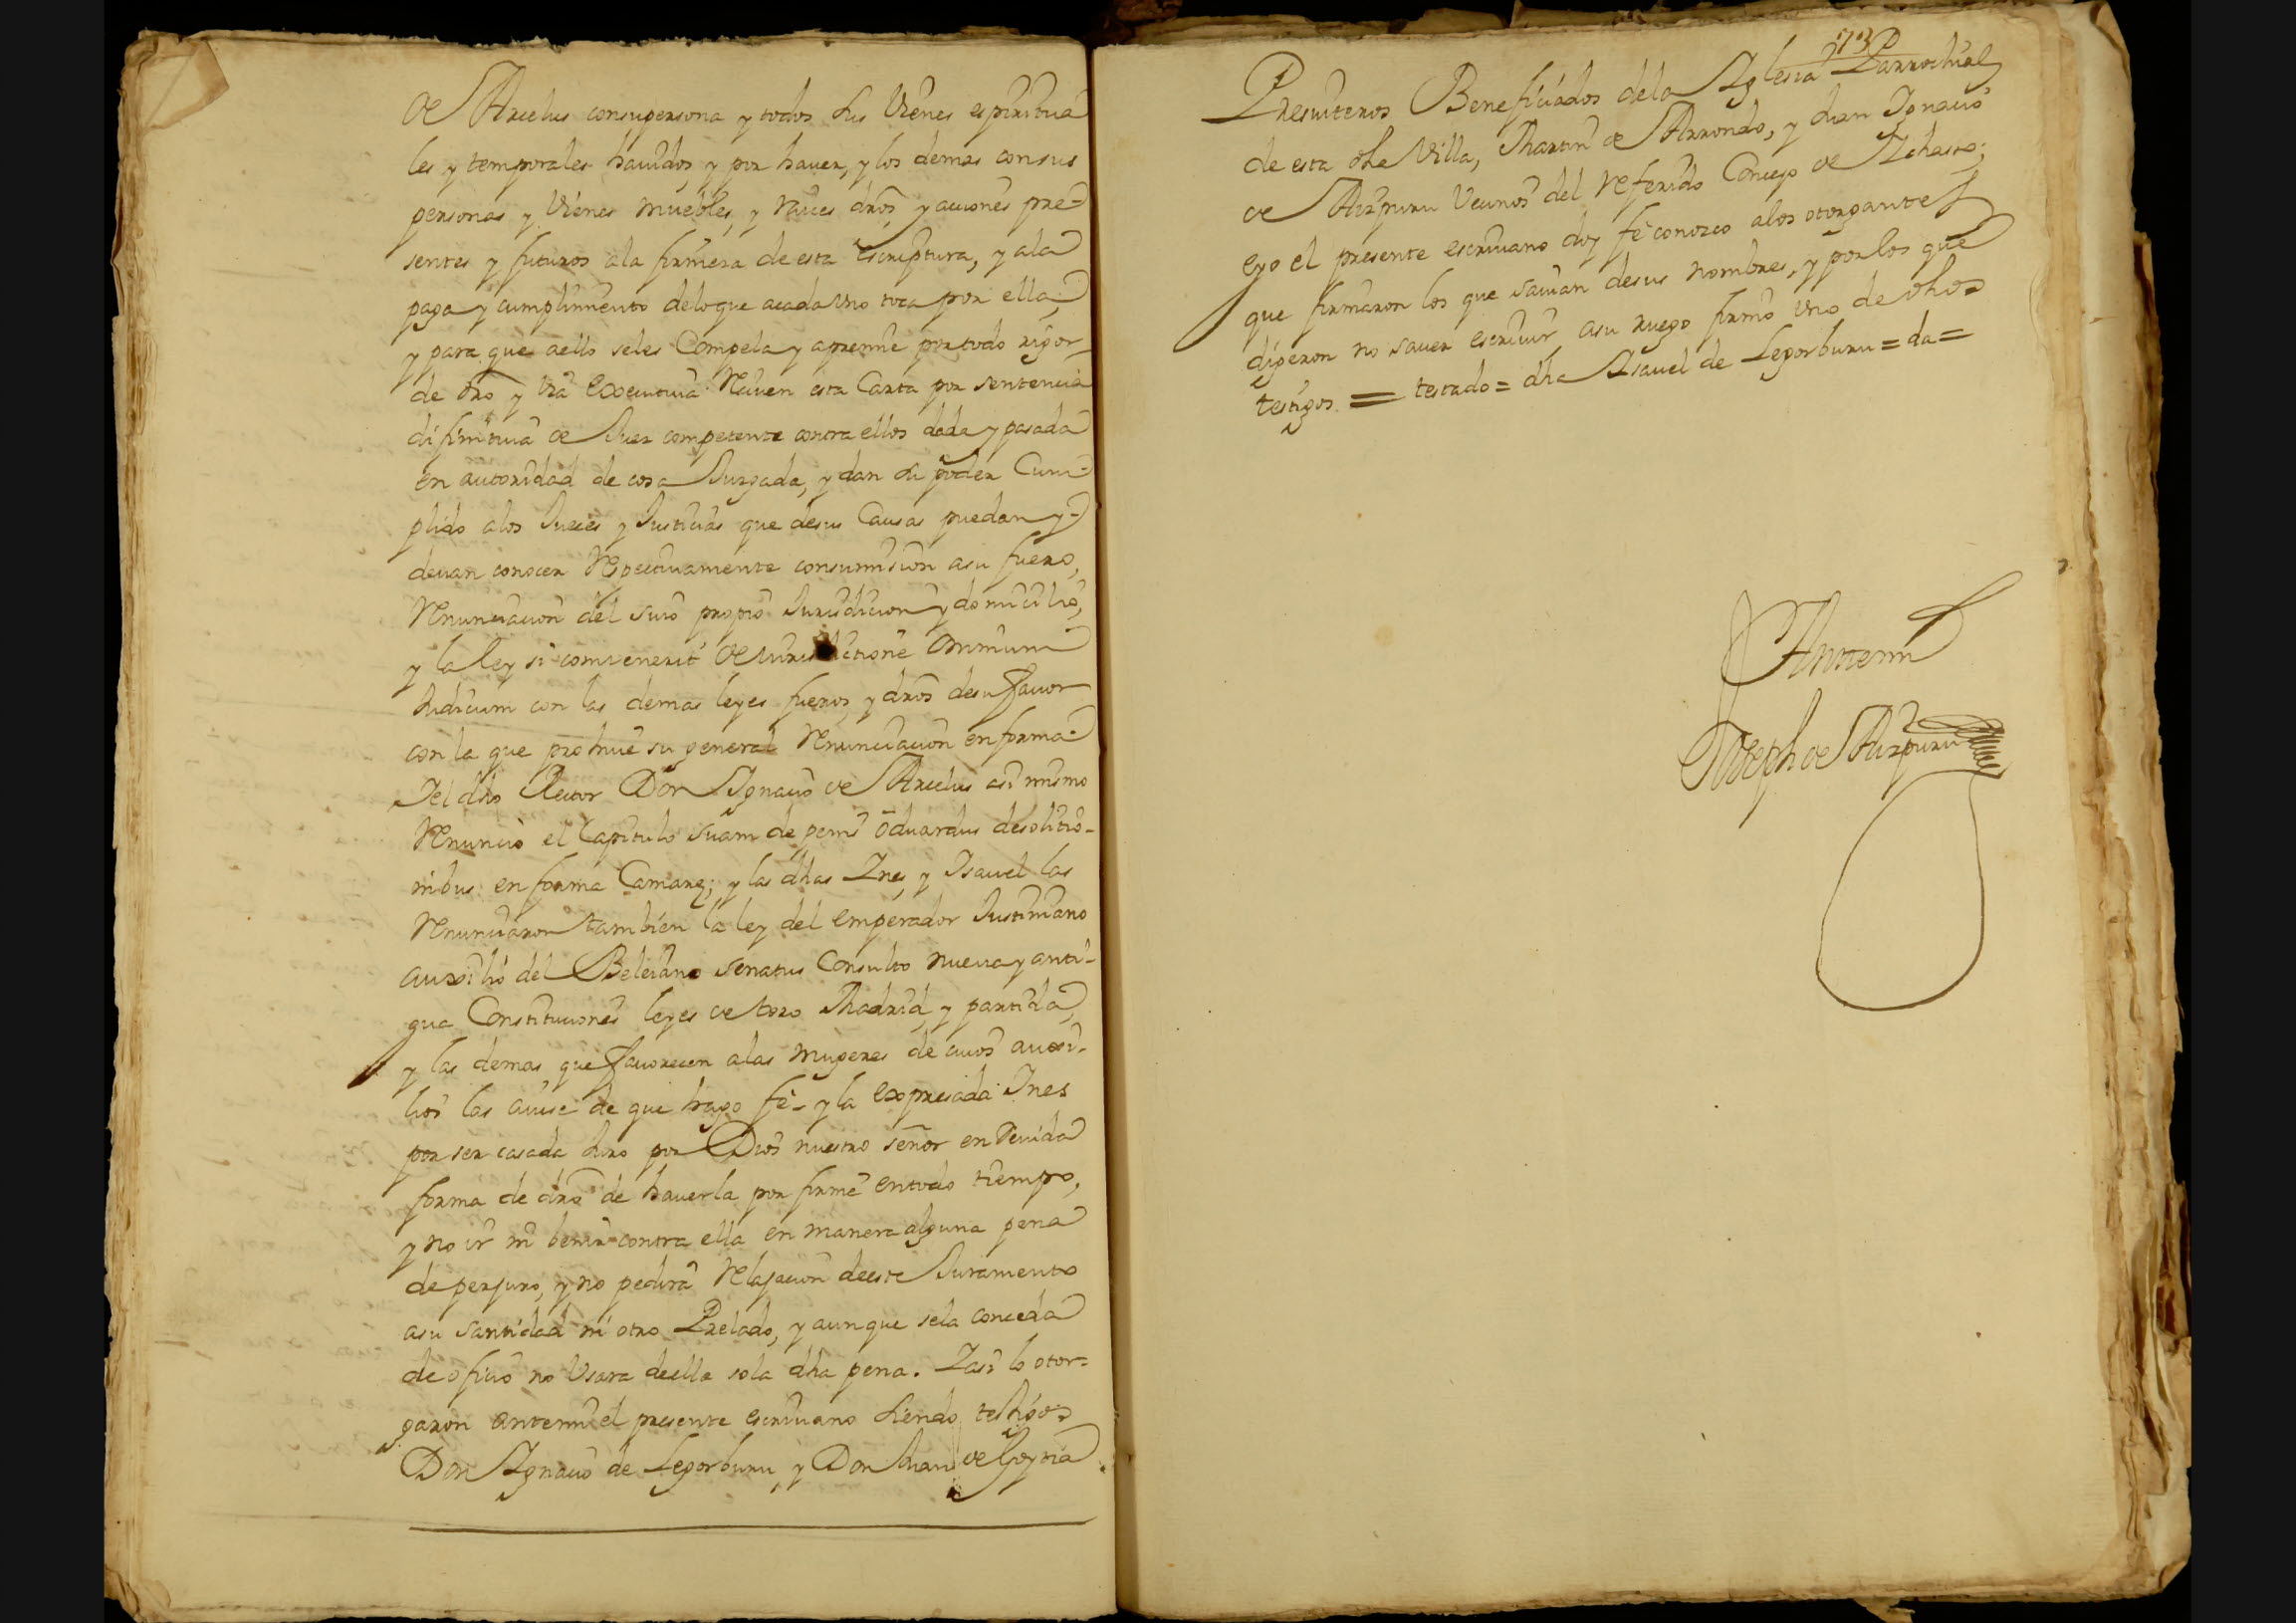 de Arcelus consupersona y todos sus Vienes espiritua
les y temporales havidos y por haver, y los demas consus
personas y Vienes muebles, y raices dros, y acciones pre=
sentes y futuros ala firmeza de esta escriptura, y ala
paga y cumplimiento deloque acada Vno toca por ella,
y para que aello seles Compela y apremie por todo rigor
de dro y via executiva Reciven esta Carta por sentencia
difinitiva de Juez competente contra ellos dada y pasada
en autoridad de cosa Juzgada, y dan su poder Cum=
plido alos Jueces y Justicias que desus Causas puedan y=
devan conocer Respectivamente consumision asu fuero,
Renunciacion del suio propio Jurisdicion y domicilio,
y la ley si convenerit de iurisdictione omnium
Judicum con las demas leyes fueros, y dros desu favor
con la que prohive su general Renunciacion en forma=
Iel dho Rector Don Ignacio de Arcelus asi mismo
Renuncio el Capitulo suam de penis oduardus desolutio-
nibus en forma Camare; y las dhas Ines, y Isavel las
Renunciaron tambien la ley del emperador Justiniano
auxilio del Beleiano senatus Consulto nueva y anti-
gua Constituciones leyes de toro Madrid, y partida,
y las demas que favorecen alas mugeres de cuios auxi-
lios las avise de que hago fe- y la expresada Ines
por ser casada Juro por Dios nuestro señor en Devida
forma de dro de haverla por firme entodo tiempo,
y no ir ni benir contra ella en manera alguna pena
de perjuro, y no pedira Relajacion deeste Juramento
asu santidad ni otro Prelado, y aunque sela conceda
de oficio no Vsara deella sola dha pena. Iasi lo otor=
garon antemi el presente escrivano siendo testigos
Don Ignacio de Legorburu, y Don Juan de Goytia
173
Presviteros Beneficiados dela Iglesia Parrochial
de esta dha Villa, Martin de Arrondo, y Juan Ignacio
de Aizpuru Vecinos del referido Concejo de Ichaso;
eyo el presente escrivano doy fe conozco alos otorgantes
que firmaron los que savian desus nombres, y por los que
digeron no saver escrivir asu ruego firmo Vno de dhos
testigos = testado = dha Isavel de Legorburu = da =
Antemi
Joseph de Aizpuru